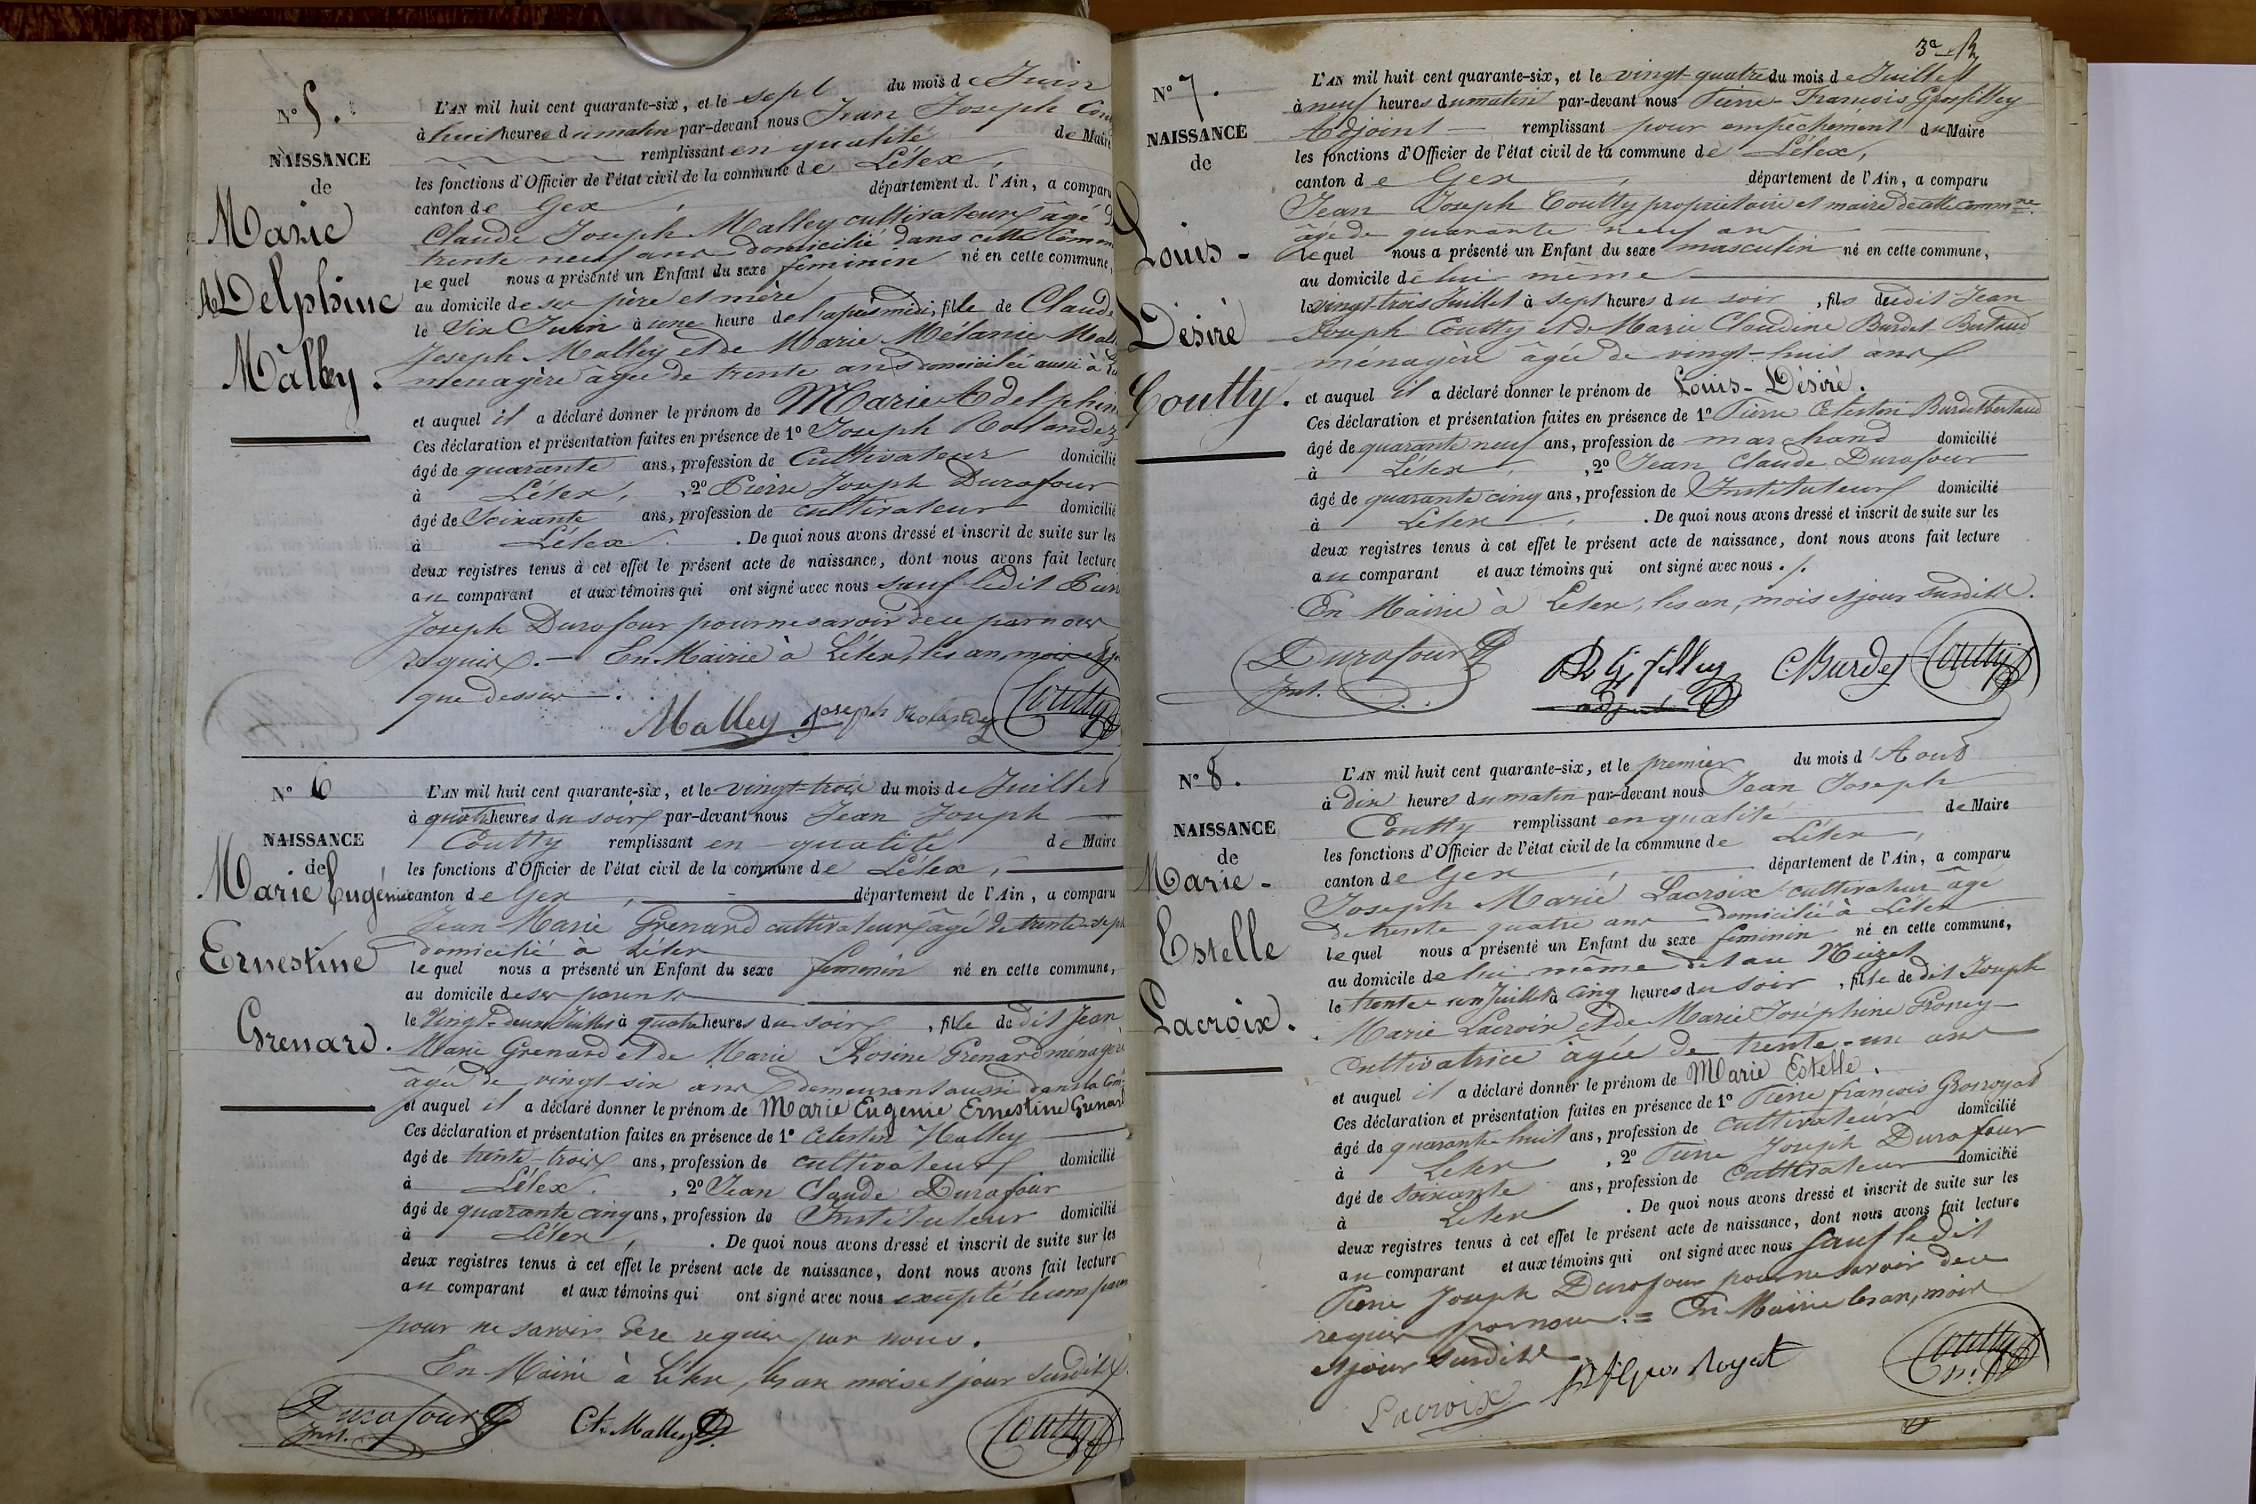 N° 5.
NAISSANCE
de
Marie
Adelphine
Malley.
L'AN mil huit cent quarante-six, et le sept du mois de Juin
à huit heures du matin par-devant nous Jean Joseph Cou
remplissant en qualité de Maire
les fonctions d'Officier de l'état civil de la commune de Lélex,
canton de Gex, département de l'Ain, a comparu
Claude Joseph Malley cultivateur âgé de
trente neuf ans domicilié dans cette Comm
lequel nous a présenté un Enfant du sexe féminin né en cette commune,
au domicile de ses père et mère
le Six Juin à une heure de l'après midi, fille de Claude
Joseph Malley et de Marie Mélanie Mall
menagère âgée de trente ans domiciliée aussi à
et auquel il a déclaré donner le prénom de Marie Adelphin
Ces déclaration et présentation faites en présence de 1° Joseph Rollandez
âgé de quarante ans, profession de Cultivateur domicilié
à Lélex, 2° Pierre Joseph Durafour
âgé de Soixante ans, profession de cultivateur domicilié
à Lélex. De quoi nous avons dressé et inscrit de suite sur les
deux registres tenus à cet effet le présent acte de naissance, dont nous avons fait lecture
au comparant et aux témoins qui ont signé avec nous sauf ledit
Joseph Durafour pour ne savoir de ce par nous
requis. — En Mairie à Lélex, les an, mois et j
que dessus.
Malley Joseph Rolandez Coutty
N° 6
NAISSANCE
de
Marie Eugénie
Ernestine
Grenard.
L'AN mil huit cent quarante-six, et le vingt-trois du mois de Juillet
à quatre heures du soir par-devant nous Jean Joseph
Coutty remplissant en qualité de Maire
les fonctions d'Officier de l'état civil de la commune de Lélex,
canton de Gex, département de l'Ain, a comparu
Jean Marie Grenard cultivateur âgé de trente-sept
domicilié à Lélex
lequel nous a présenté un Enfant du sexe féminin né en cette commune,
au domicile de ses parents
le Vingt-deux Juillet à quatre heures du soir, fille de dit Jean
Marie Grenard et de Marie Rosine Grenard ménagère
âgée de vingt-six ans demeurant aussi dans la Com
et auquel il a déclaré donner le prénom de Marie Eugénie Ernestine Grenard
Ces déclaration et présentation faites en présence de 1° Célestin Malley
âgé de trente-trois ans, profession de cultivateur domicilié
à Lélex. , 2° Jean Claude Durafour
âgé de quarante cinq ans, profession de Instituteur domicilié
à Lélex, . De quoi nous avons dressé et inscrit de suite sur les
deux registres tenus à cet effet le présent acte de naissance, dont nous avons fait lecture
au comparant et aux témoins qui ont signé avec nous excepté le compar
pour ne savoir de ce requis par nous.
En Mairie à Lélex, les an mois et jour susdits.
Durafour Inst. Ct. Malley Coutty
N° 7.
NAISSANCE
de
Louis-
Désiré
Coutty.
L'AN mil huit cent quarante-six, et le vingt-quatre du mois de Juillet
à neuf heures du matin par-devant nous Pierre-François Grosfilley
Adjoint — remplissant pour empêchement du Maire
les fonctions d'Officier de l'état civil de la commune de Lélex,
canton de Gex, département de l'Ain, a comparu
Jean Joseph Coutty propriétaire et maire de cette commne
âgé de quarante neuf ans
lequel nous a présenté un Enfant du sexe masculin né en cette commune,
au domicile de lui même
le vingt-trois Juillet à sept heures du soir, fils dudit Jean
Joseph Coutty et de Marie Claudine Burdet-Bertaud
menagère âgée de vingt-huit ans
et auquel il a déclaré donner le prénom de Louis-Désiré.
Ces déclaration et présentation faites en présence de 1° Pierre Célestin Burdetbertaud
âgé de quarante neuf ans, profession de marchand domicilié
à Lélex, , 2° Jean Claude Durafour
âgé de quarante cinq ans, profession de Instituteur domicilié
à Lélex, . De quoi nous avons dressé et inscrit de suite sur les
deux registres tenus à cet effet le présent acte de naissance, dont nous avons fait lecture
au comparant et aux témoins qui ont signé avec nous ./.
En Mairie à Lélex, les an, mois et jour susdits.
Durafour Inst. Burdet Coutty
N° 8.
NAISSANCE
de
Marie-
Estelle
Lacroix.
L'AN mil huit cent quarante-six, et le premier du mois d'Août
à dix heures du matin par-devant nous Jean Joseph
Coutty remplissant en qualité de Maire
les fonctions d'Officier de l'état civil de la commune de Lélex,
canton de Gex, département de l'Ain, a comparu
Joseph Marie Lacroix cultivateur âgé
de trente quatre ans domicilié à Lélex
lequel nous a présenté un Enfant du sexe féminin né en cette commune,
au domicile de lui même dit au
le trente un Juillet à cinq heures du soir, fille de dit Joseph
Marie Lacroix et de Marie Joséphine
cultivatrice âgée de trente-un ans
et auquel il a déclaré donner le prénom de Marie Estelle.
Ces déclaration et présentation faites en présence de 1° Pierre françois Grosroyat
âgé de quarante-huit ans, profession de cultivateur domicilié
à Lélex , 2° Pierre Joseph Durafour
âgé de soixante ans, profession de Cultivateur domicilié
à Lélex . De quoi nous avons dressé et inscrit de suite sur les
deux registres tenus à cet effet le présent acte de naissance, dont nous avons fait lecture
au comparant et aux témoins qui ont signé avec nous sauf le dit
Pierre Joseph Durafour pour ne savoir de ce
requis par nous. = En Mairie les an, mois
et jour susdits
Lacroix Coutty